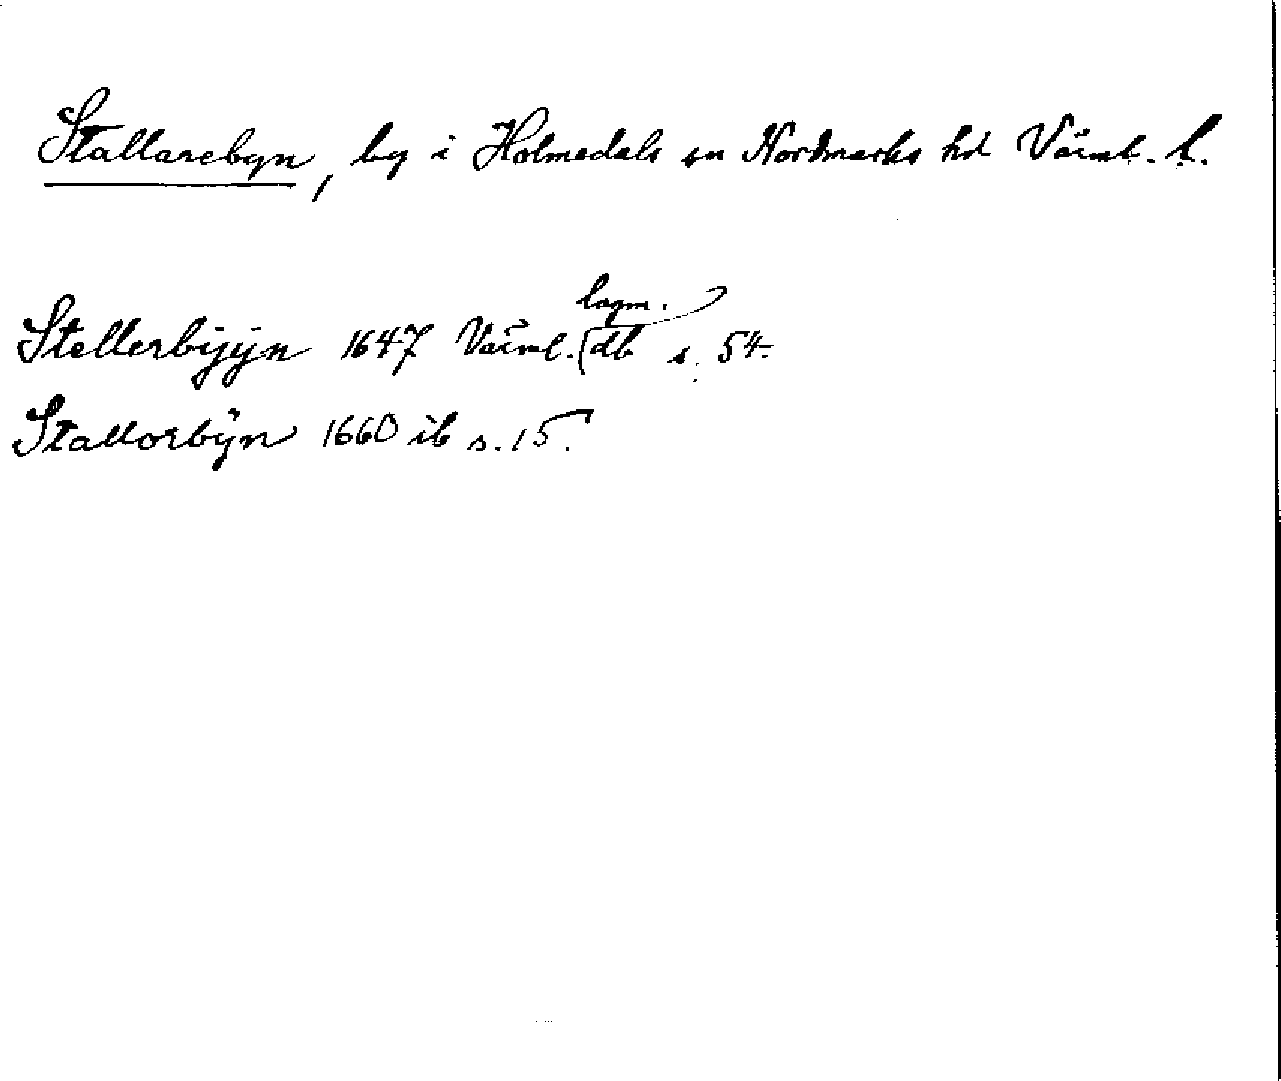 Stallarebyn, by i Holmedals sn Nordmarks hd Värml. l.
Stellerbijÿn 1647 Värml. lagm. db s. 54.
Stallorbÿn 1660 ib s. 15.